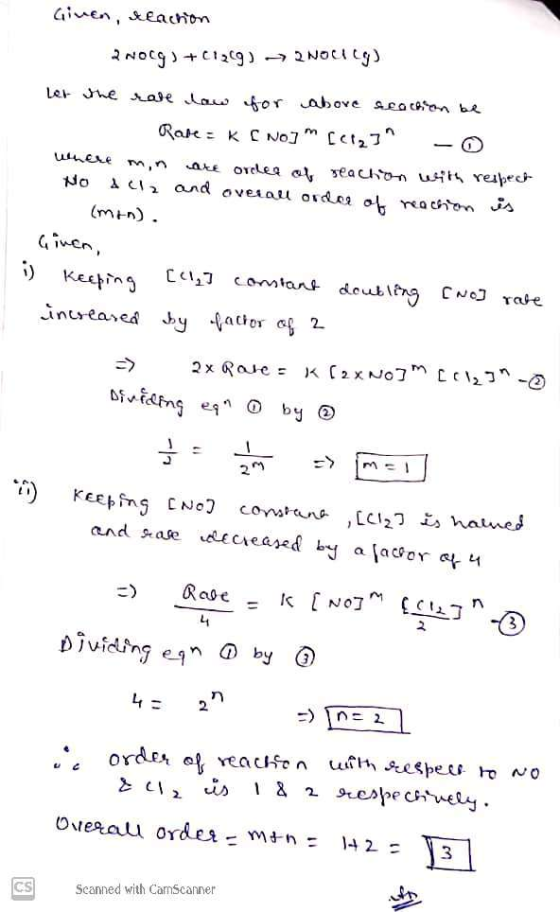 Given, reaction
2NO(g) + Cl2(g) → 2NOCl(g)
Let the rate law for above reaction be
Rate = K [NO]^m [Cl2]^n — ①
where m,n are order of reaction with respect
NO & Cl2 and overall order of reaction is
(m+n).
Given,
i) Keeping [Cl2] constant doubling [NO] rate
increased by factor of 2
⇒ 2x Rate = K [2xNO]^m [Cl2]^n -②
Dividing eqn ① by ②
1/2 = 1/2^m ⇒ m=1
ii) Keeping [NO] constant, [Cl2] is halved
and rate decreased by a factor of 4
⇒ Rate/4 = K [NO]^m [Cl2/2]^n -③
Dividing eqn ① by ③
4 = 2^n ⇒ n=2
∴ order of reaction with respect to NO
& Cl2 is 1 & 2 respectively.
Overall order = m+n = 1+2 = 3
CS Scanned with CamScanner